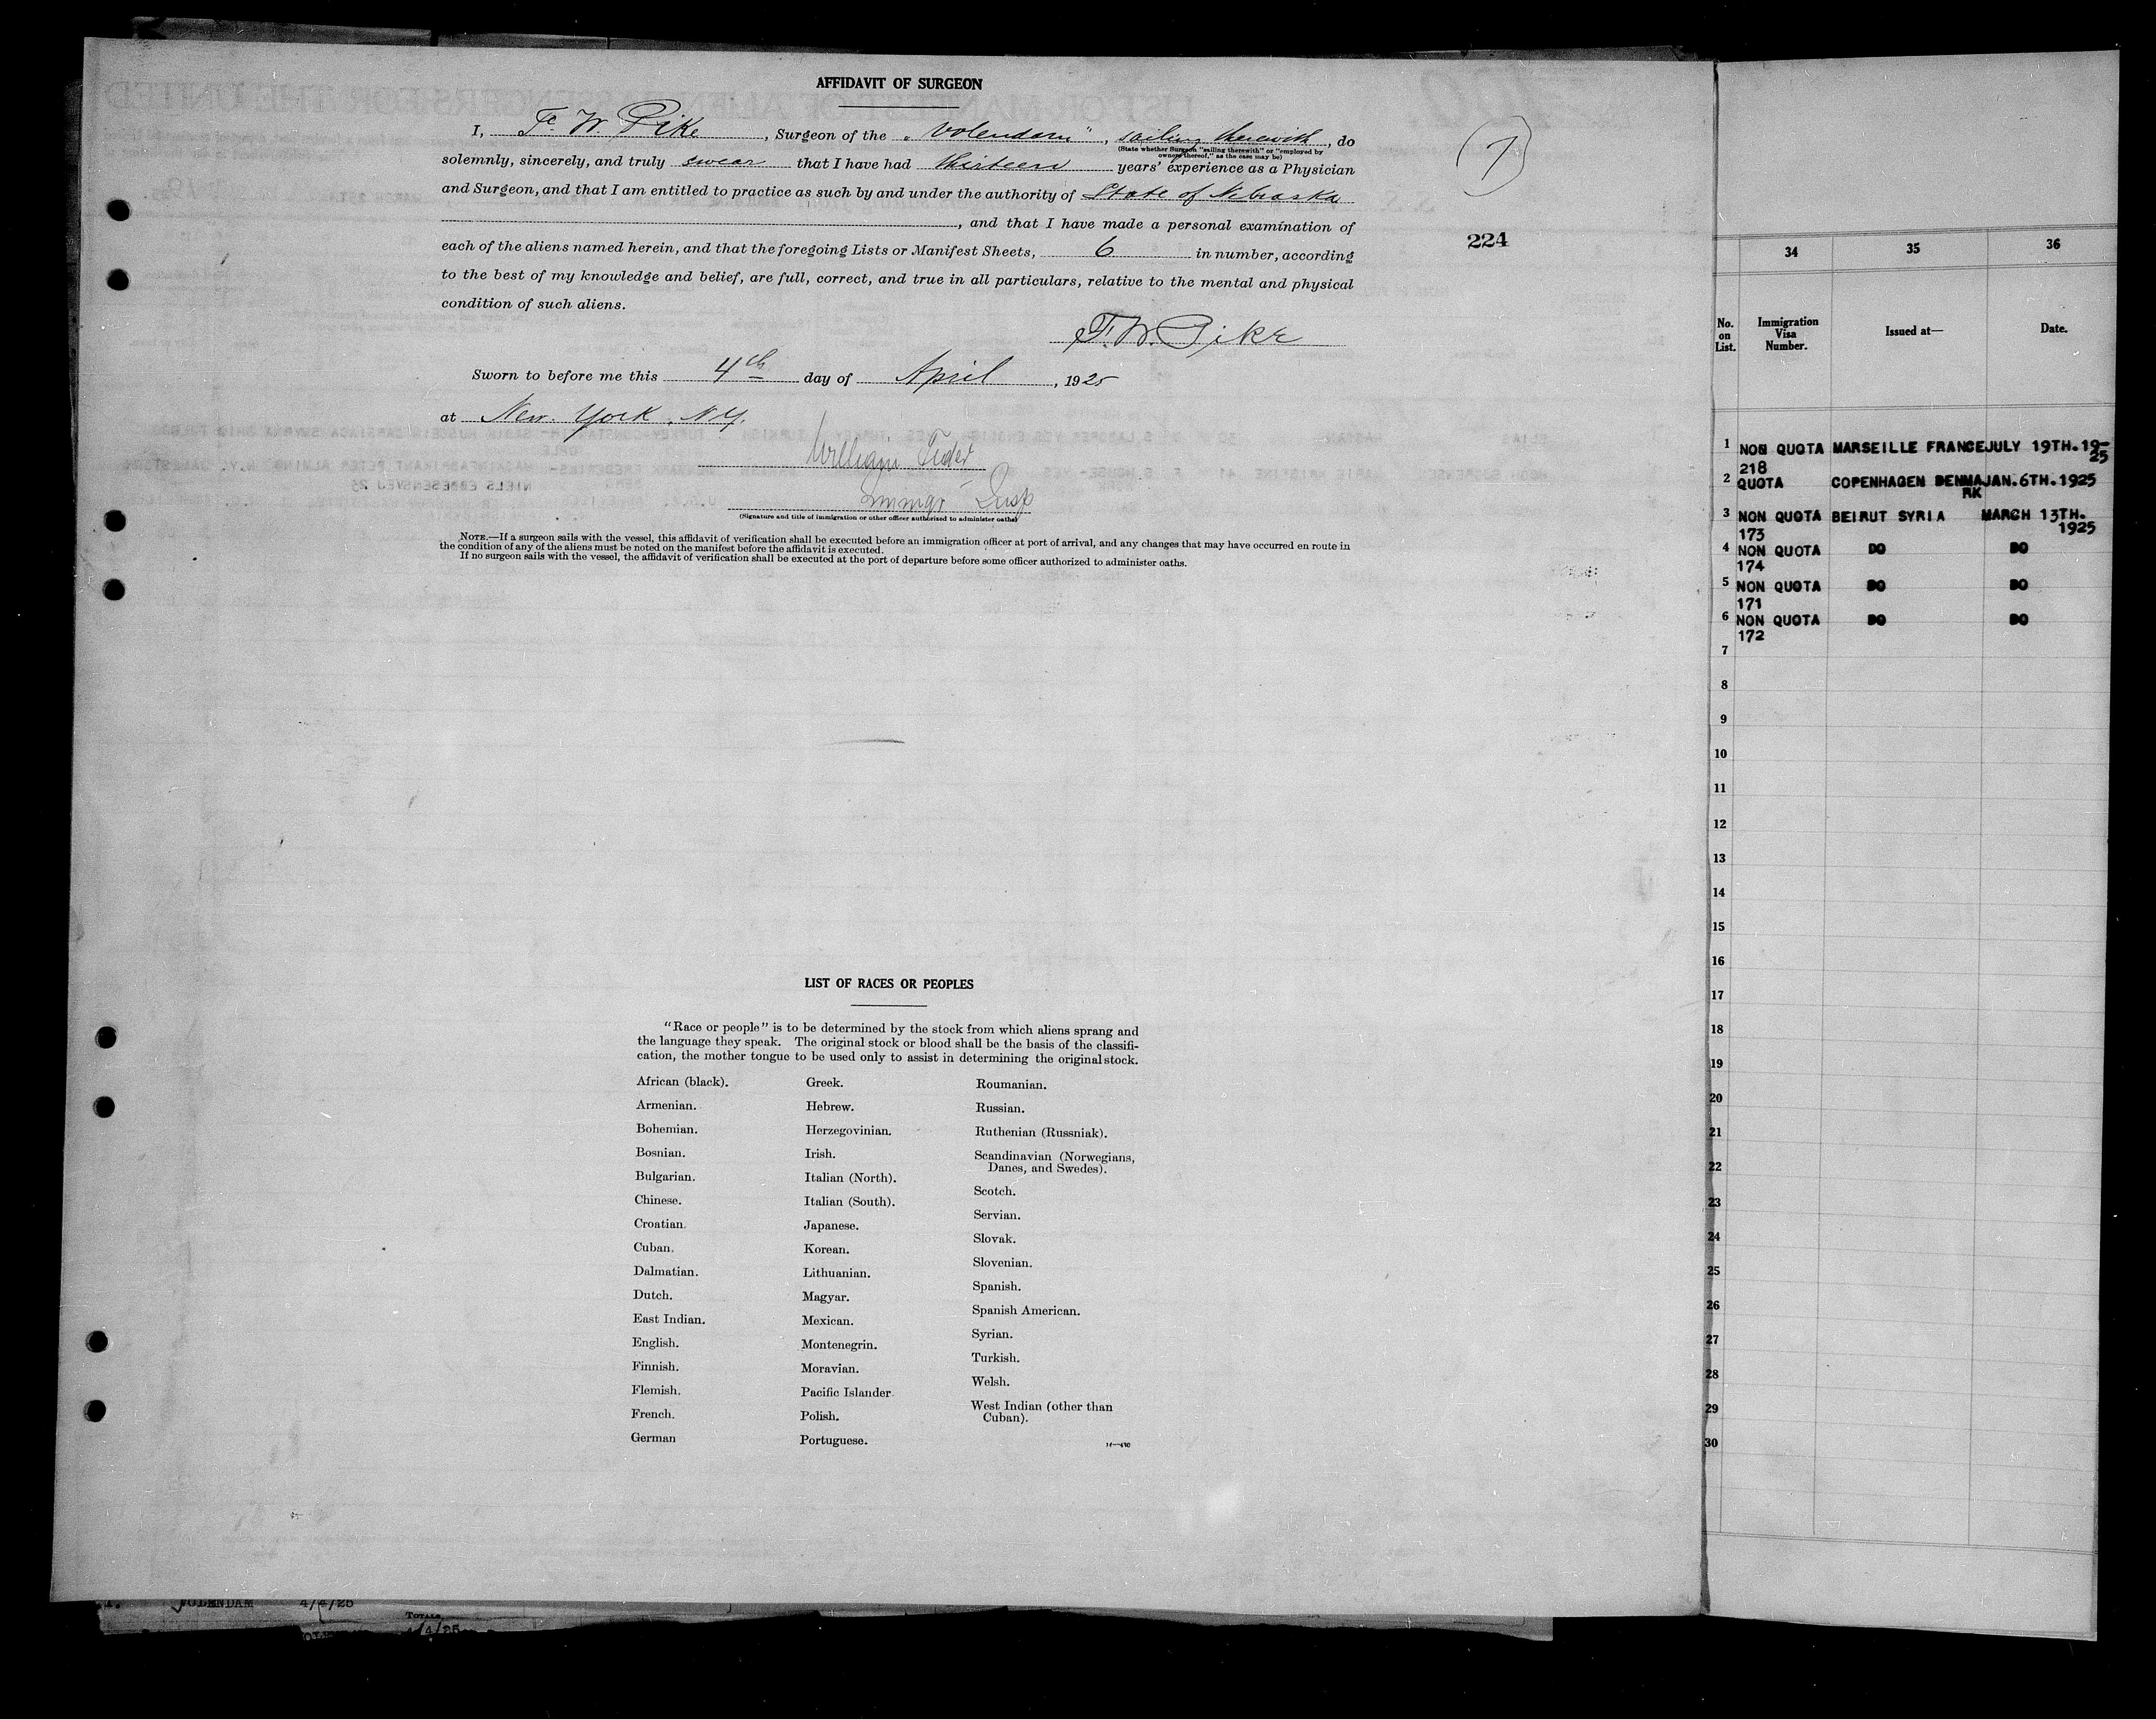 AFFIDAVIT OF SURGEON
I, F. W. Pike, Surgeon of the "Volendam", sailing therewith, do
(State whether Surgeon "sailing therewith" or "employed by
owners thereof," as the case may be)
solemnly, sincerely, and truly swear that I have had thirteen years' experience as a Physician
and Surgeon, and that I am entitled to practice as such by and under the authority of State of Nebraska
, and that I have made a personal examination of
each of the aliens named herein, and that the foregoing Lists or Manifest Sheets, 6 in number, according
to the best of my knowledge and belief, are full, correct, and true in all particulars, relative to the mental and physical
condition of such aliens.
F. W. Pike
Sworn to before me this 4th day of April, 1925
at New York, N.Y.
William
Immigr Insp
(Signature and title of immigration or other officer authorized to administer oaths)
NOTE.—If a surgeon sails with the vessel, this affidavit of verification shall be executed before an immigration officer at port of arrival, and any changes that may have occurred en route in
the condition of any of the aliens must be noted on the manifest before the affidavit is executed.
If no surgeon sails with the vessel, the affidavit of verification shall be executed at the port of departure before some officer authorized to administer oaths.
(7)
224
LIST OF RACES OR PEOPLES
"Race or people" is to be determined by the stock from which aliens sprang and
the language they speak. The original stock or blood shall be the basis of the classifi-
cation, the mother tongue to be used only to assist in determining the original stock.
African (black).
Armenian.
Bohemian.
Bosnian.
Bulgarian.
Chinese.
Croatian.
Cuban.
Dalmatian.
Dutch.
East Indian.
English.
Finnish.
Flemish.
French.
German
Greek.
Hebrew.
Herzegovinian.
Irish.
Italian (North).
Italian (South).
Japanese.
Korean.
Lithuanian.
Magyar.
Mexican.
Montenegrin.
Moravian.
Pacific Islander.
Polish.
Portuguese.
Roumanian.
Russian.
Ruthenian (Russniak).
Scandinavian (Norwegians,
Danes, and Swedes).
Scotch.
Servian.
Slovak.
Slovenian.
Spanish.
Spanish American.
Syrian.
Turkish.
Welsh.
West Indian (other than
Cuban).
34 35 36
No. on List. Immigration Visa Number. Issued at— Date.
1 NON QUOTA MARSEILLE FRANCE JULY 19TH. 19-
218 25
2 QUOTA COPENHAGEN DENMA JAN. 6TH. 1925
RK
3 NON QUOTA BEIRUT SYRIA MARCH 13TH.
173 1925
4 NON QUOTA DO DO
174
5 NON QUOTA DO DO
171
6 NON QUOTA DO DO
172
7
8
9
10
11
12
13
14
15
16
17
18
19
20
21
22
23
24
25
26
27
28
29
30
VOLENDAM 4/4/25
TOTALS
4/4/25